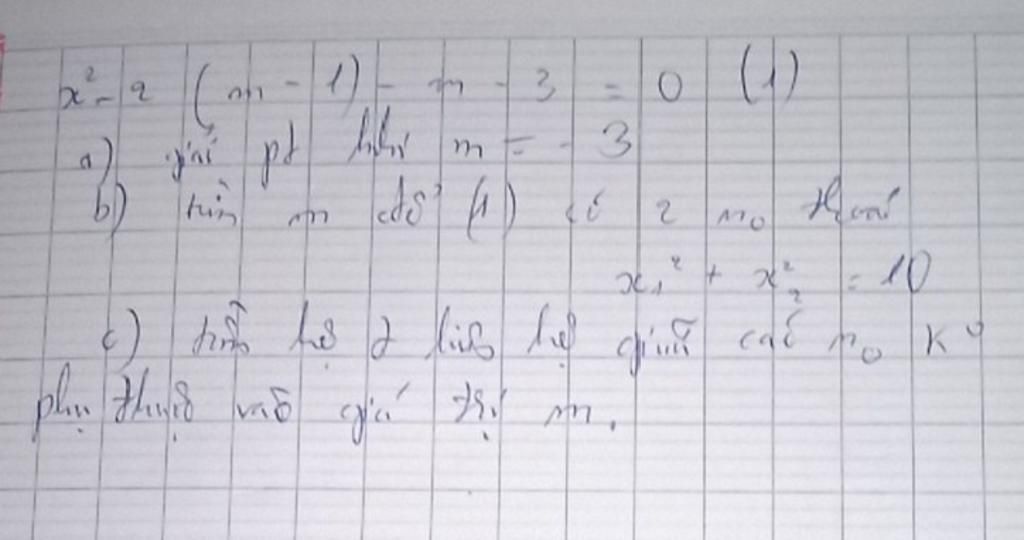 x² - 2 (m - 1) - m - 3 = 0 (1)
a) giải pt khi m = - 3
b) tìm m để (1) có 2 no thoả
x₁² + x₂² = 10
c) tìm hệ t liên hệ giữa các no K°
phụ thuộc vào giá trị m.